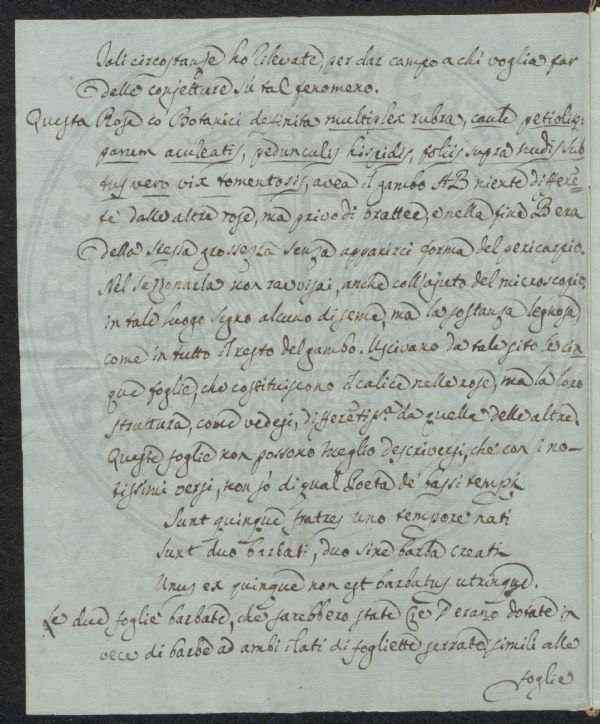 Tali circostanze ho rilevate, per dar campo a chi voglia far
delle conjetture sù tal fenomeno.
Questa Rosa co' Botanici definita multiplex rubra, caule petiolisq;
parum aculeatis, pedunculis hispidis, foliis supra nudis sub
tus vero vix tomentosis, avea il gambo AB niente differē
te dalle altre rose, ma privo di brattee, e nella fine B era
della stessa grossezza senza apparirci forma del pericarpio.
Nel sezzonarla non ravvisai, anche coll'ajuto del microscopio,
in tale luogo segno alcuno di seme, ma la sostanza legnosa,
come in tutto il resto del gambo. Uscivano da tale sito le cin
que foglie, che costituiscono il calice nelle rose, ma la loro
struttura, come vedesi, differētiss.a da quella delle altre.
Queste foglie non possono meglio descriversi, che con i no-
tissimi versi, non sò di qual Poeta de' bassi tempi
Sunt quinque fratres uno tempore nati
Sunt duo barbati, duo sine barba creati
Unus ex quinque non est barbatus utrinque.
Le due foglie barbate, che sarebbero state C, e D erano dotate in
vece di barbe ad ambi i lati di fogliette serrate simili alle
foglie